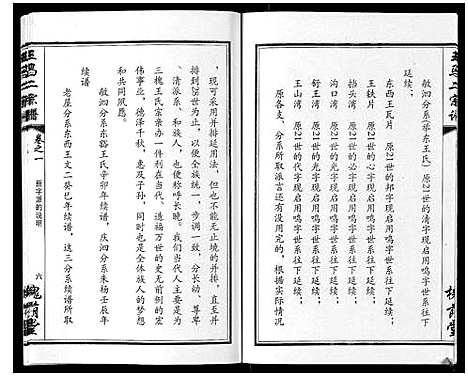 延续；
敏泗分系（挙东王氏） 原21世的清字现启用鸣字世系往下
延续；
东西王瓦片 原21世的邦字现启用鸣字世系往下延续；
王铁片 原21世的心字现启用鸣字世系往下延续；
挡头湾 原21世的必字现启用鸣字世系往下延续；
沟口湾 原21世的学字现启用鸣字世系往下延续；
舒王湾 原21世的光字现启用鸣字世系往下延续；
王山湾 原21世的代字现启用鸣字世系往下延续；
原各支、分系所取派言还有没用完的，根据实际情况
，现可采用并排延用法，但也不能无止境的并排，直至并
排到25世为止，以便使全族统一、步调一致，分长幼、尊卑
、清派系、和族人，也便称呼长晚。我们当代人主要是为
三槐王氏宗亲办一件前无古人、造福万世的史无前例的宏
伟事业，德泽千秋，惠及子孙，同时也是全体族人的梦想
和共同夙愿。
续谱
敏泗分系东豁王氏辛卯年续谱，庆泗分系朱杨壬辰年
老屋分系东西王文二癸巳年续谱，这三分系续谱所取
卷之一
振字派的说明
六
槐阴堂